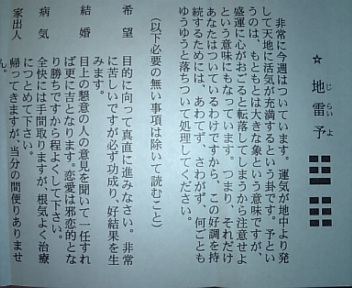 ☆ 地雷予
じらいよ
非常に今週はついています。運気が地中より発
して天地に活気が充満するという卦です。予とい
うのは、もともとは大きな象という意味ですが、
盛運に心がおごると転落してしまうから注意せよ
という意味にもなっています。つまり、それだけ
あなたはついているわけですから、この好調を持
続するためには、あわてず、さわがず、何ごとも
ゆうゆうと落ちついて処理してください。
(以下必要の無い事項は除いて読むこと)
希望 目的に向って真直に進みなさい。非常
に苦しいですが必ず功成り、好結果を生
みます。
結婚 目上の懇意の人の意見を聞いて一任すれ
ば更に吉となります。恋愛は邪恋的とな
り勝ちですから程よくして下さい。
病気 全快には手間取りますが、根気よく治療
につとめて下さい。
家出人 帰ってきますが、当分の間便りありませ
ん。